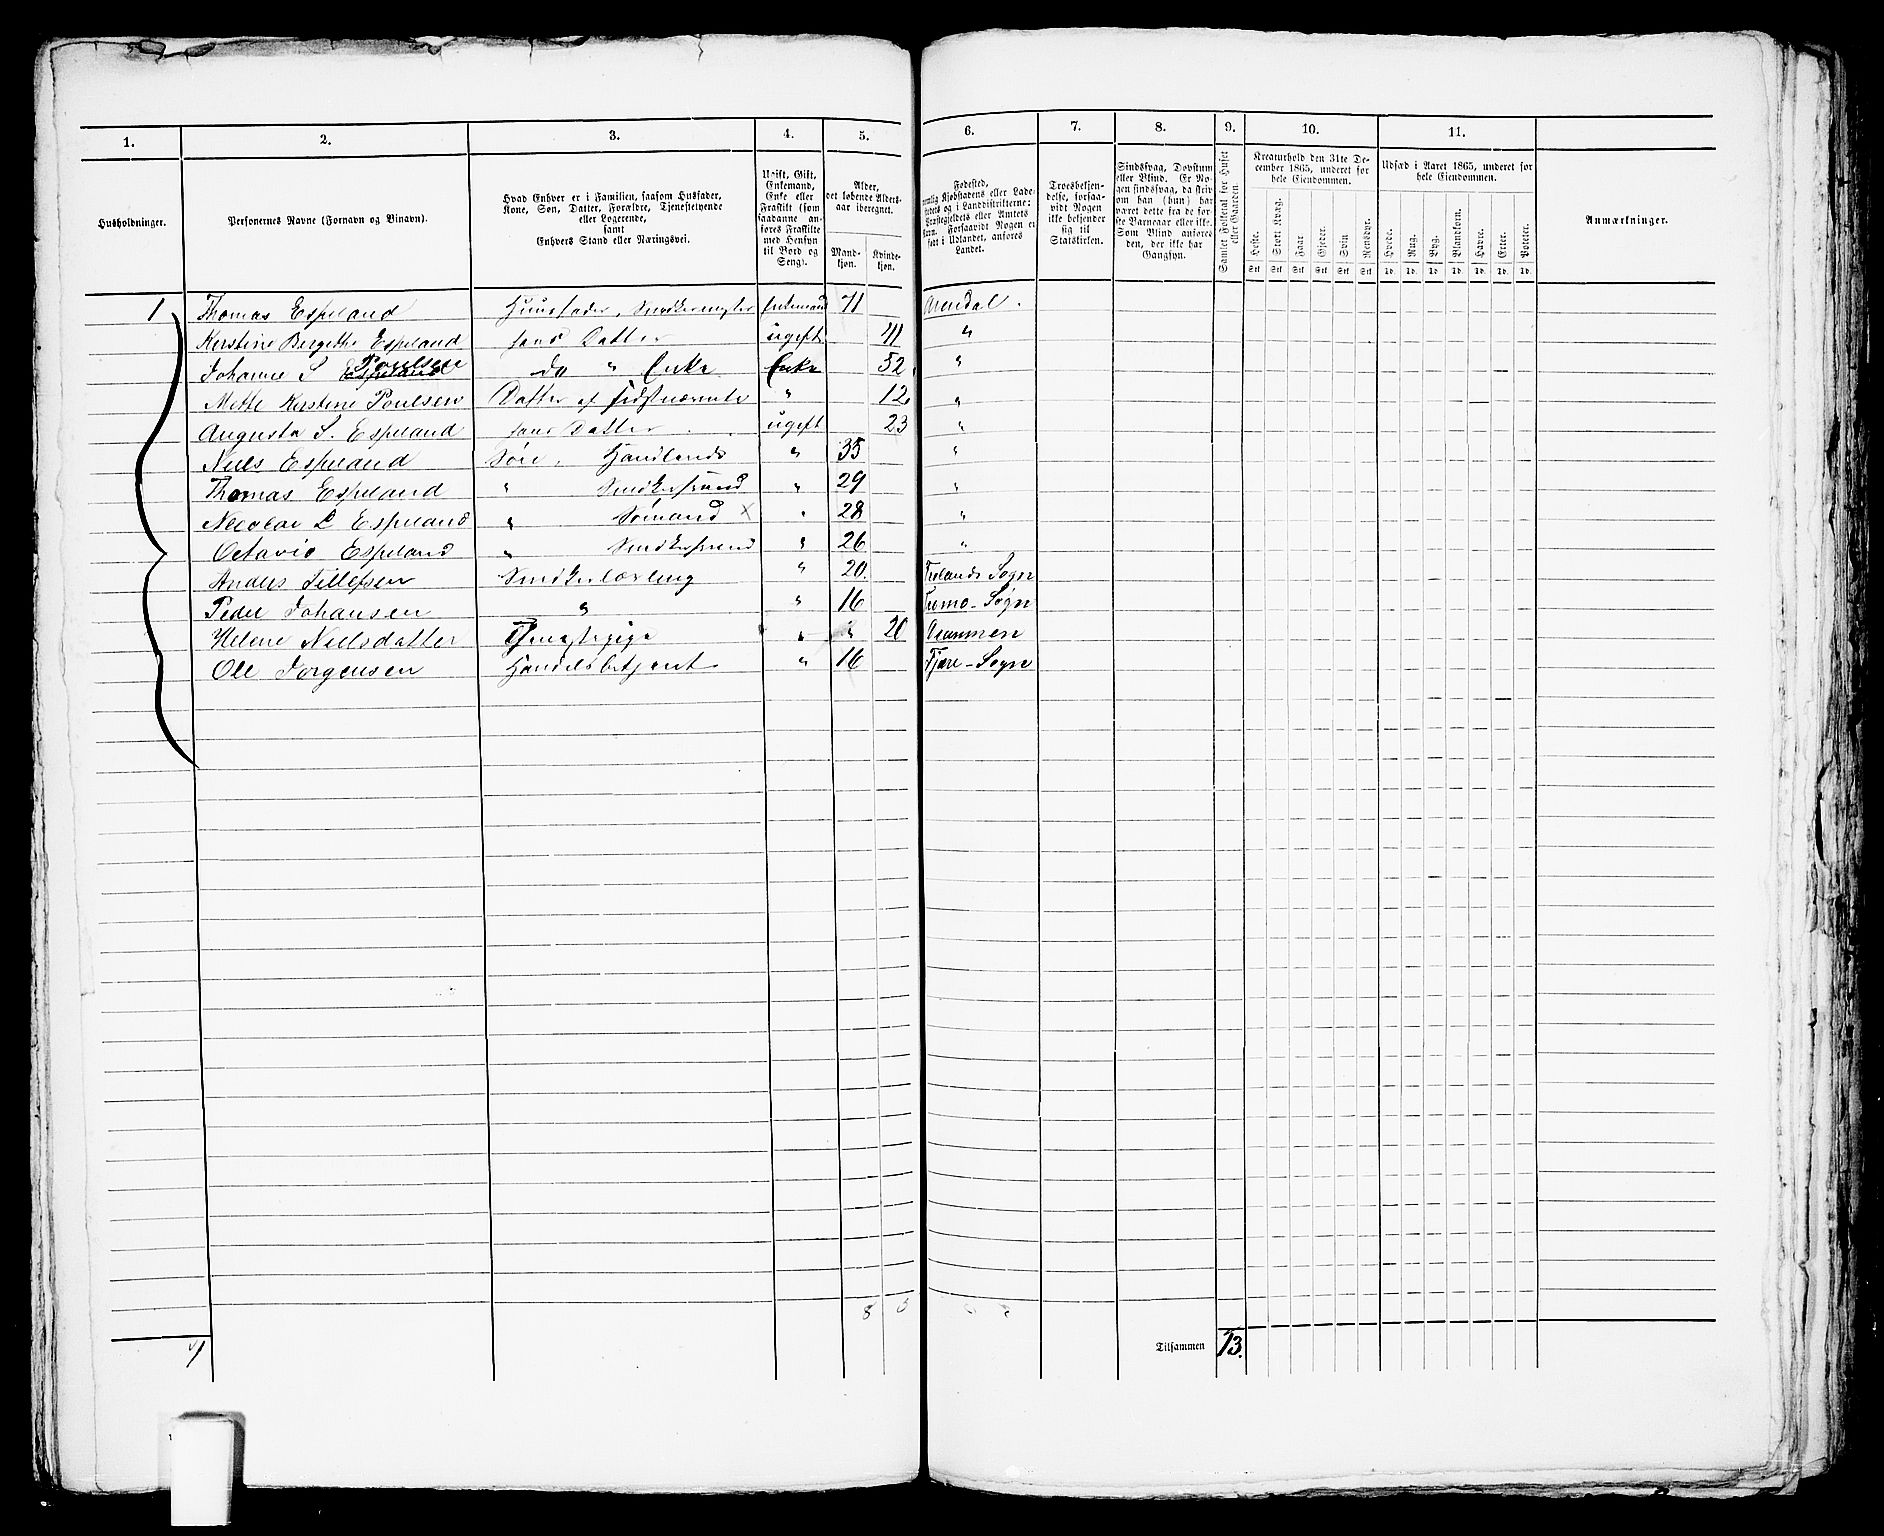 1. 2. 3. 4. 5. 6. 7. 8. 9. 10. 11.
Husholdninger.
Personernes Navne (Fornavn og Binavn).
Hvad Enhver er i Familien, saasom Husfader,
Kone, Søn, Datter, Forældre, Tjenestetyende
eller Logerende,
samt
Enhvers Stand eller Næringsvei.
Ugift, Gift,
Enkemand,
Enke eller
Fraskilt (som
saadanne an-
føres Fraskilte
med Hensyn
til Bord og
Seng).
Alder,
det løbende Alders-
aar iberegnet.
Mand-
kjøn.
Kvinde-
kjøn.
Fødested,
nemlig Kjøbstadens eller Lade-
stedets og i Landdistrikterne:
Præstegjeldets eller Amtets
Navn. Forsaavidt Nogen er
født i Udlandet, anføres
Landet.
Troesbekjen-
delse, forsaa-
vidt Nogen
ikke bekjender
sig til
Statskirken.
Sindssvag, Døvstum
eller Blind. Er No-
gen sindssvag, da skriv
om han (hun) har
været dette fra de før-
ste Barneaar eller ikke.
Som Blind anføres
den, der ikke har
Gangsyn.
Samlet Folketal for Huset
eller Gaarden.
Kreaturhold den 31te De-
cember 1865, underet for
hele Eiendommen.
Heste. Stort Kvæg. Faar Gjeder. Svin Rensdyr.
Stk Stk Stk Stk Stk Stk
Udsæd i Aaret 1865, underet for
hele Eiendommen.
Hvede. Rug. Byg. Blandkorn. Havre. Erter. Poteter.
Td. Td. Td. Td. Td. Td. Td.
Anmærkninger.
1 Thomas Espeland Huusfader, Snedkermester Enkemand 71 Arendal.
Kirstine Bergithe Espeland hans Datter ugift 41 "
Johanne S Espeland Poulsen do " Enke Enke 52 "
Mette Kirstine Poulsen Datter af sidstnævnte " 12 "
Augusta S. Espeland hans Datter ugift 23 "
Niels Espeland Søn, Handlende " 35 "
Thomas Espeland " Snedkersvend " 29 "
Nicolai L Espeland " Sømand X " 28 "
Octavio Espeland " Snedkersvend " 26 "
Anders Tellefsen Snedkerlærling " 20 Froland Sogn
Peder Johansen " " 16 Tromø-Sogn
Helene Nielsdatter Tjenestepige " " 20 Drammen
Ole Jørgensen Handelsbetjent " 16 Fjære-Sogn
8 5
1
Tilsammen 13.